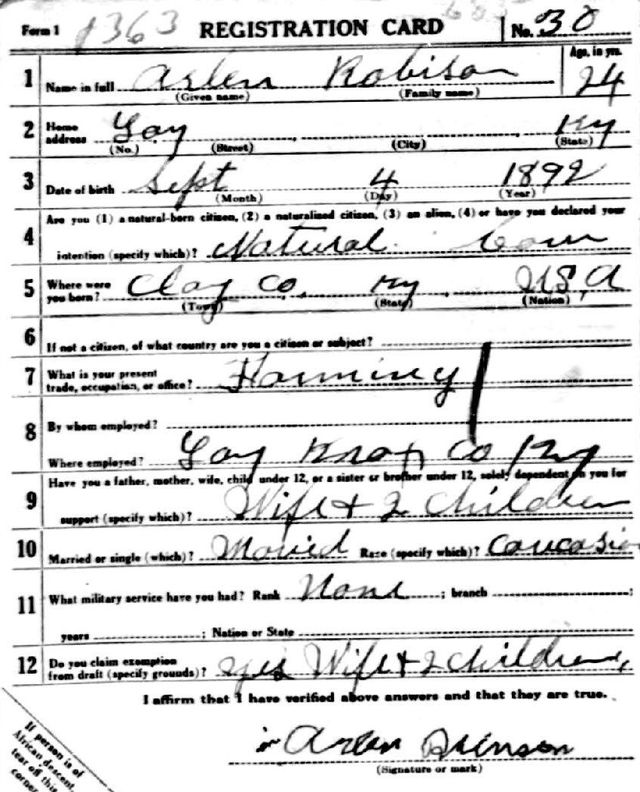 Form 1 1363 REGISTRATION CARD No. 30
1 Name in full Arlen Robison Age, in yrs. 24
(Given name) (Family name)
2 Home address Gay Ky
(No.) (Street) (City) (State)
3 Date of birth Sept 4 1892
(Month) (Day) (Year)
Are you (1) a natural-born citizen, (2) a naturalized citizen, (3) an alien, (4) or have you declared your
4 intention (specify which)? Natural Born
5 Where were you born? Clay Co. Ky. U.S.A
(Town) (State) (Nation)
6 If not a citizen, of what country are you a citizen or subject?
7 What is your present trade, occupation, or office? Farming
8 By whom employed?
Where employed? Gay Knox Co Ky
Have you a father, mother, wife, child under 12, or a sister or brother under 12, solely dependent on you for
9 support (specify which)? Wife & 2 Children
10 Married or single (which)? Maried Race (specify which)? Caucasian
11 What military service have you had? Rank None ; branch ;
years ; Nation or State
12 Do you claim exemption from draft (specify grounds)? yes Wife & 2 Children,
I affirm that I have verified above answers and that they are true.
Arlen
(Signature or mark)
If person is of
African descent,
tear off this
corner